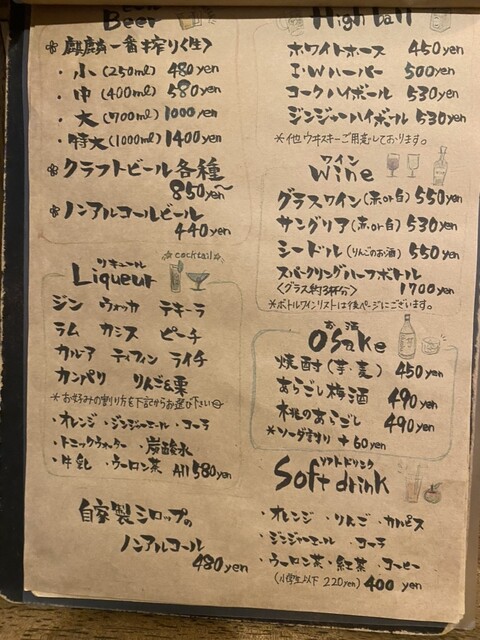 Beer
麒麟一番搾り〈生〉
・小(250ml) 480yen
・中(400ml) 580yen
・大(700ml) 1000yen
・特大(1000ml) 1400yen
クラフトビール各種
850yen~
ノンアルコールビール
440yen
リキュール
Liqueur
☆cocktail☆
ジン ウォッカ テキーラ
ラム カシス ピーチ
カルア ティフィン ライチ
カンパリ りんご&栗
*お好みの割り方を下記からお選び下さい
・オレンジ ・ジンジャーエール ・コーラ
・トニックウォーター ・炭酸水
・牛乳 ・ウーロン茶 All 580yen
自家製シロップの
ノンアルコール
480yen
High ball
ホワイトホース 450yen
I.Wハーパー 500yen
コークハイボール 530yen
ジンジャーハイボール 530yen
*他、ウヰスキーご用意しております。
ワイン
Wine
グラスワイン(赤or白) 550yen
サングリア(赤or白) 530yen
シードル(りんごのお酒) 550yen
スパークリングハーフボトル
〈グラス約3杯分〉 1700yen
*ボトルワインリストは後ページにございます。
お酒
Osake
焼酎(芋・麦) 450yen
あらごし梅酒 490yen
桃のあらごし 490yen
*ソーダ割り +60yen
ソフトドリンク
Soft drink
・オレンジ ・りんご ・カルピス
・ジンジャーエール ・コーラ
・ウーロン茶 ・紅茶 ・コーヒー
(小学生以下 220yen) 400yen